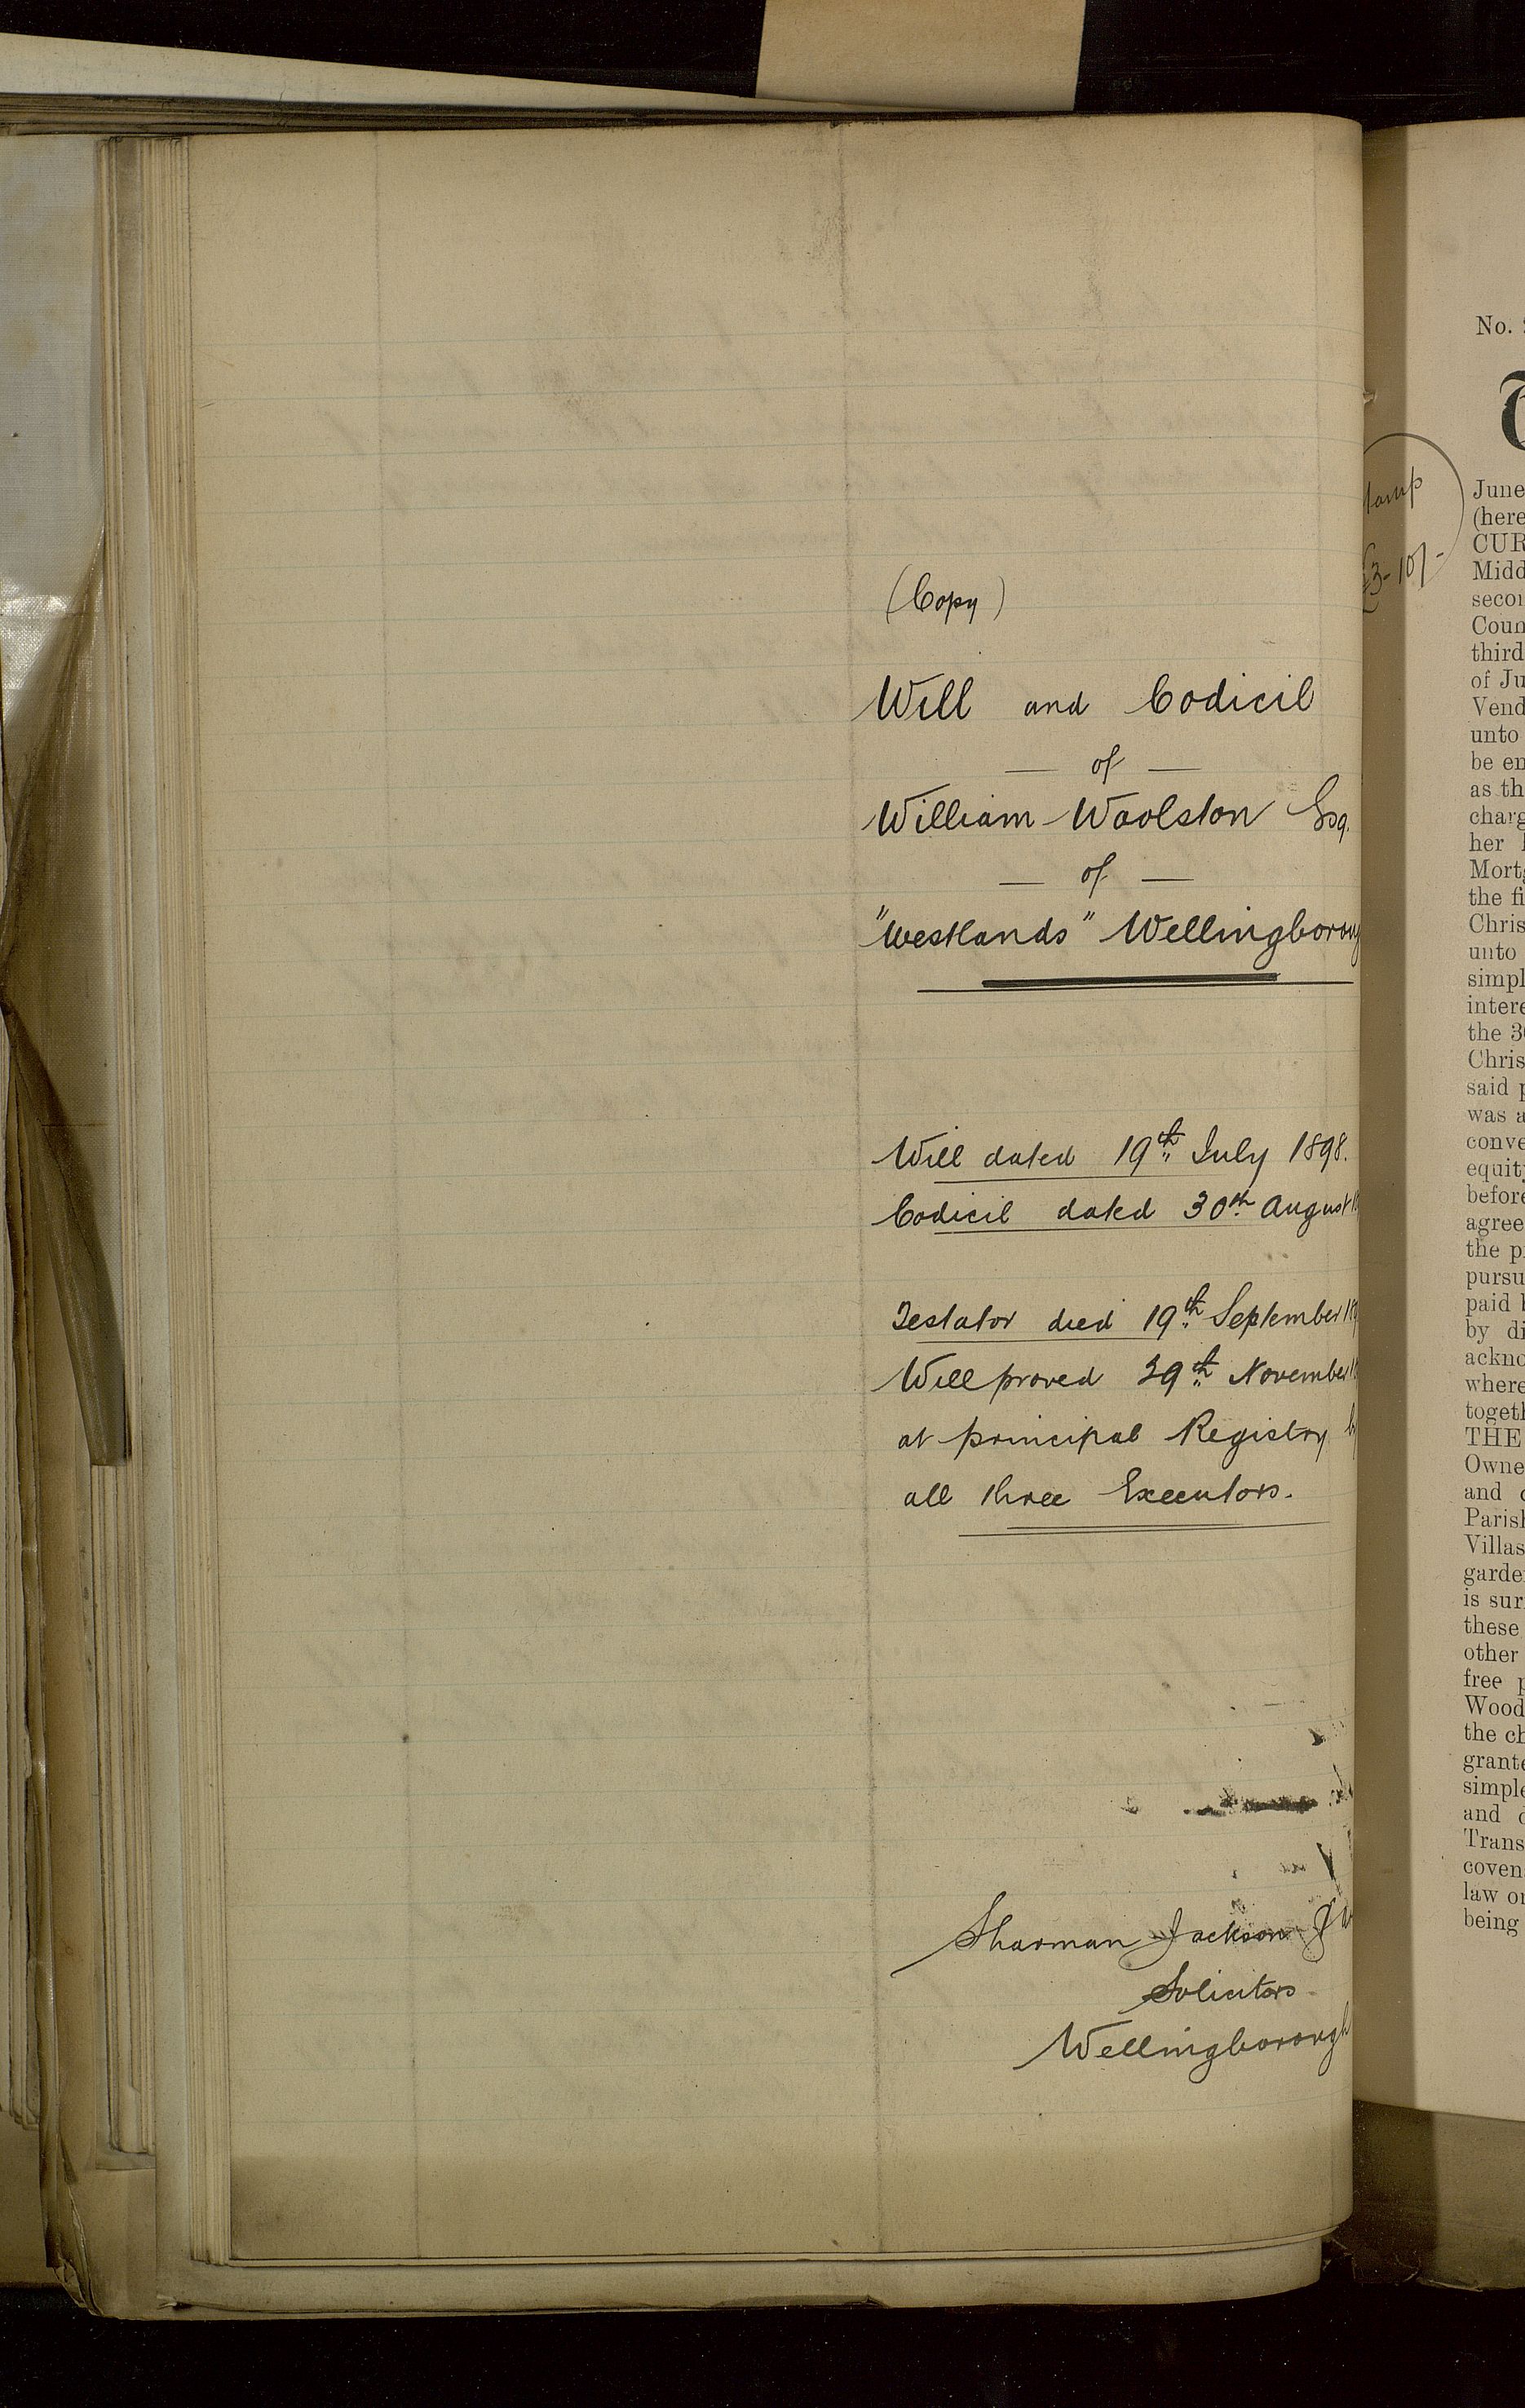 (Copy)
Will and Codicil
— of —
William Woolston Esq.
— of —
"Westlands" Wellingboroug
Will dated 19th July 1898.
Codicil dated 30th August 1
Testator died 19th September 189
Will proved 29th November 1
at principal Registry b
all three Executors.
Sharman Jackson &
Solicitors
Wellingborough
tamp
£3-10/-
No.
June
(here
CUR
Midd
secon
Coun
third
of Ju
Vend
unto
be en
as th
charg
her
Mortg
the fi
Chris
unto
simpl
intere
the 3
Chris
said p
was a
conve
equit
before
agree
the p
pursu
paid
by di
ackno
where
togeth
THE
Owne
and
Parish
Villas
garde
is sur
these
other
free p
Wood
the ch
grante
simple
and
Trans
coven
law or
being